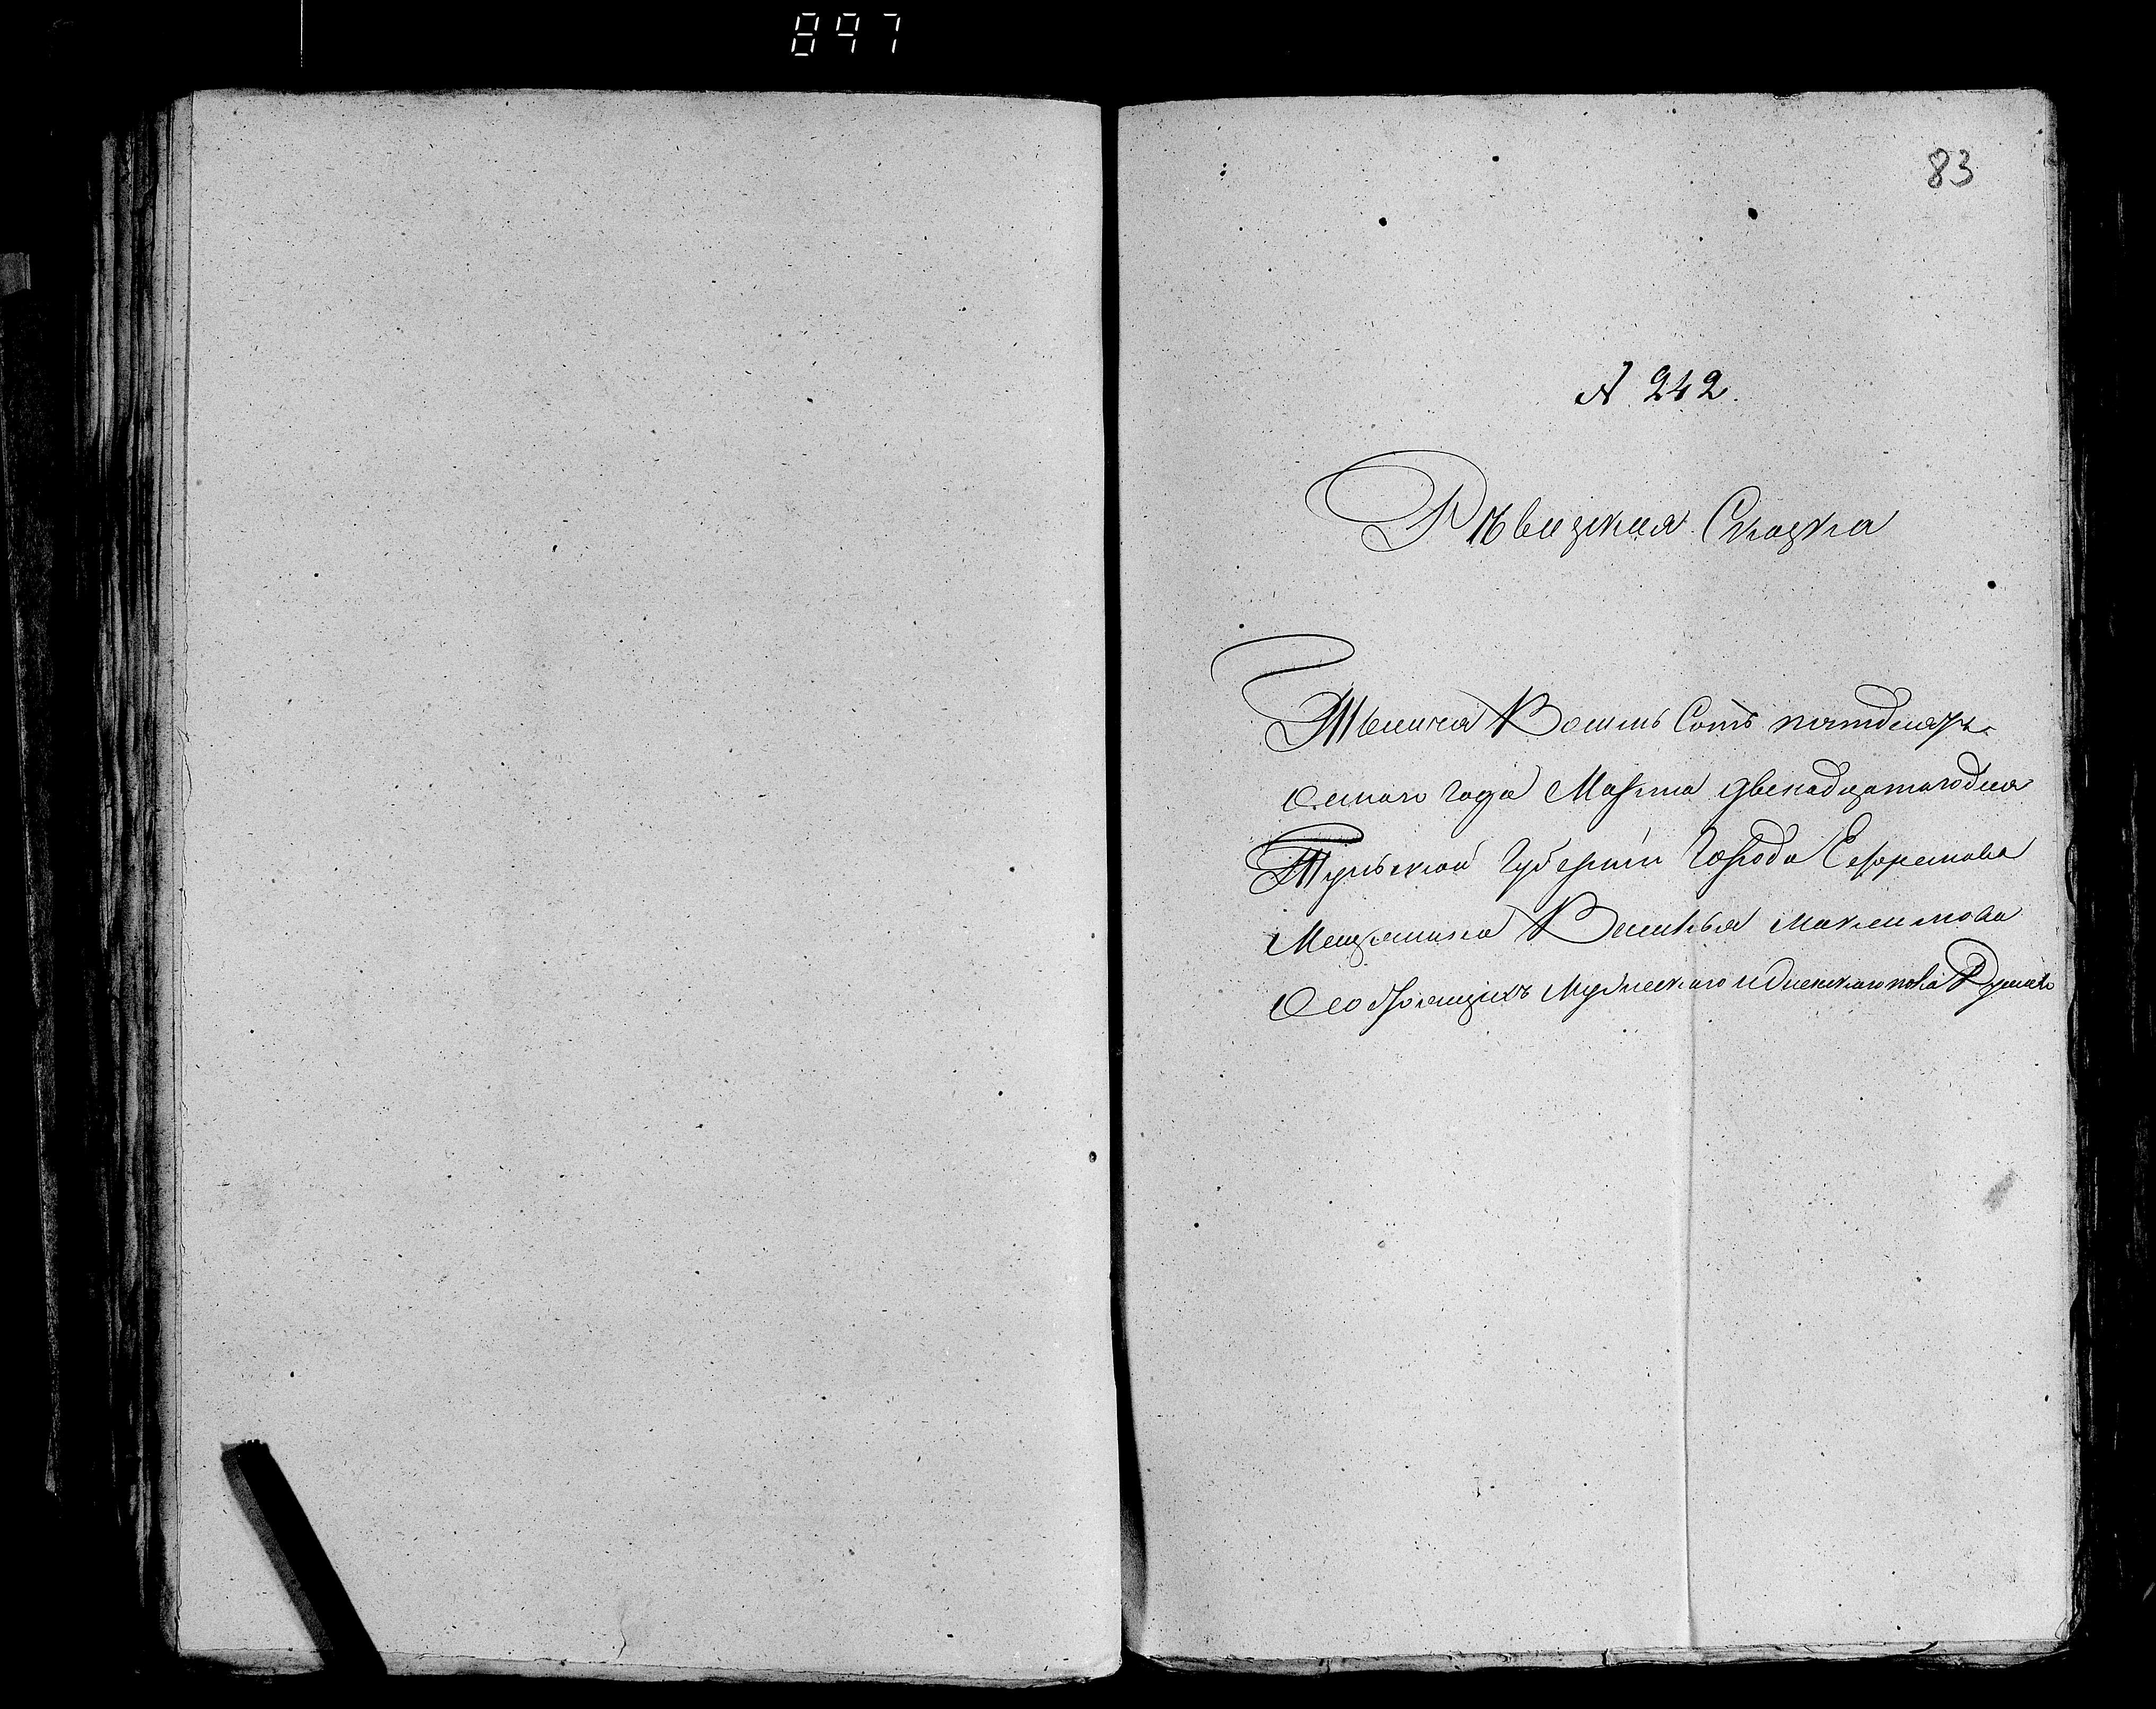 897
83
№ 242.
Рѣвизкая Сказка
Тысеча Восемь Сотъ пятдесятъ
осмаго года Марта двенадцатагодня
Тульской Губерніи Города Ефремова
Мещанина Василья Максимова
О состоящихъ Мужескаго иЖенскаго пола Душахъ